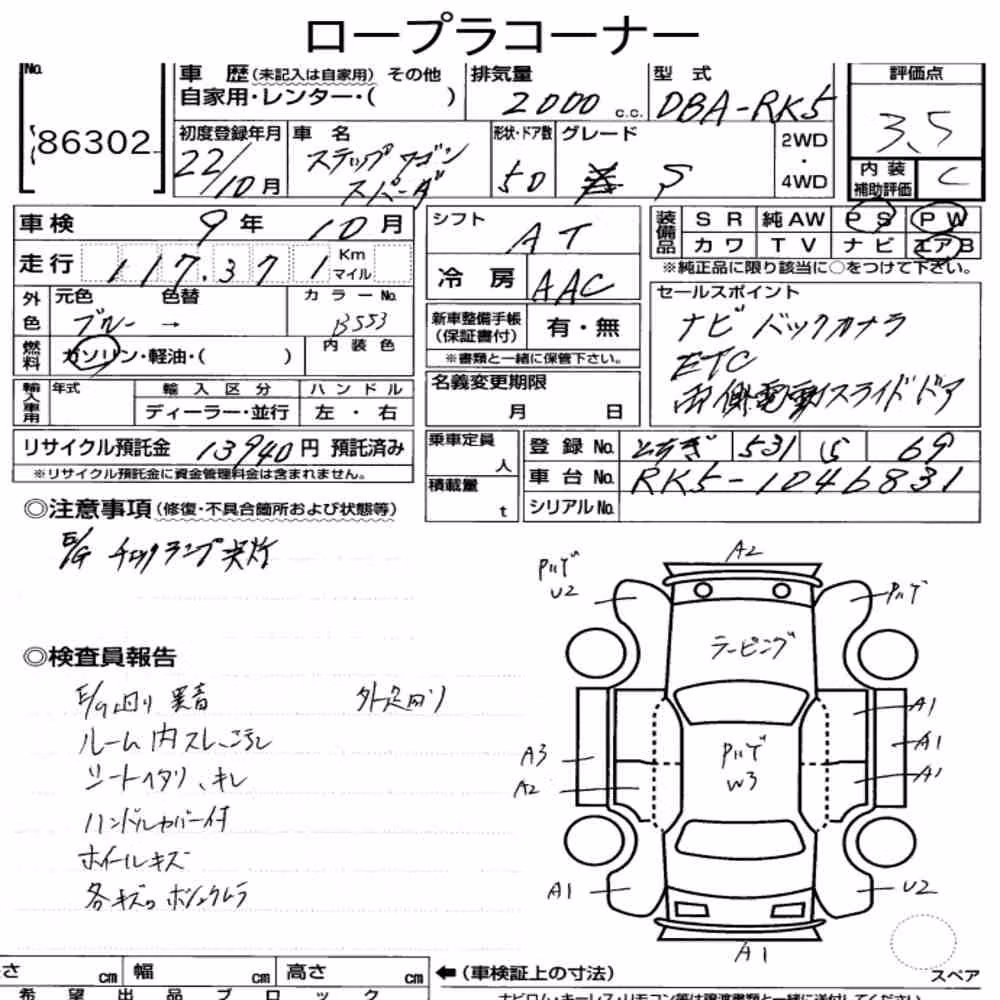 ロープラコーナー
No.
86302
車 歴 (未記入は自家用) その他
自家用・レンター・( )
排気量
2000 c.c.
型 式
DBA-RK5
評価点
3.5
内 装
補助評価
C
初度登録年月
22/10月
車 名
ステップワゴン
スパーダ
形状・ドア数
5D
グレード
S
2WD
・
4WD
車 検 9 年 10 月
走 行 117.371 Km
マイル
シフト
AT
冷 房 AAC
装備品
S R 純AW P S P W
カワ T V ナビ エアB
※純正品に限り該当に○をつけて下さい。
外色
元色 色替
ブルー →
カラーNo.
B553
燃料
ガソリン・軽油・( )
内 装 色
新車整備手帳
(保証書付)
有・無
※書類と一緒に保管下さい。
セールスポイント
ナビ バックカメラ
ETC
両側電動スライドドア
輸入車用
年式
輸 入 区 分
ディーラー・並行
ハ ン ド ル
左 ・ 右
名義変更期限
月 日
リサイクル預託金 13940 円 預託済み
※リサイクル預託金に資金管理料金は含まれません。
乗車定員
人
積載量
t
登 録 No. とちぎ 531 69
車 台 No. RK5-1046831
シリアルNo.
◎注意事項 (修復・不具合箇所および状態等)
E/G チェックランプ点灯
◎検査員報告
E/G廻り 異音 外足回り
ルーム内スレ、こげ
シートイタリ、キレ
ハンドルカバー付
ホイールキズ
各キズ
A2
U2
ラーピング
W3
A3
A2
A1
A1
A1
A1
U2
A1
スペア
さ cm 幅 cm 高さ cm
(車検証上の寸法)
希 望 出 品 ブ ロ ッ ク
ナビロム・キーレス・リモコン等は譲渡書類と一緒に送付してください。